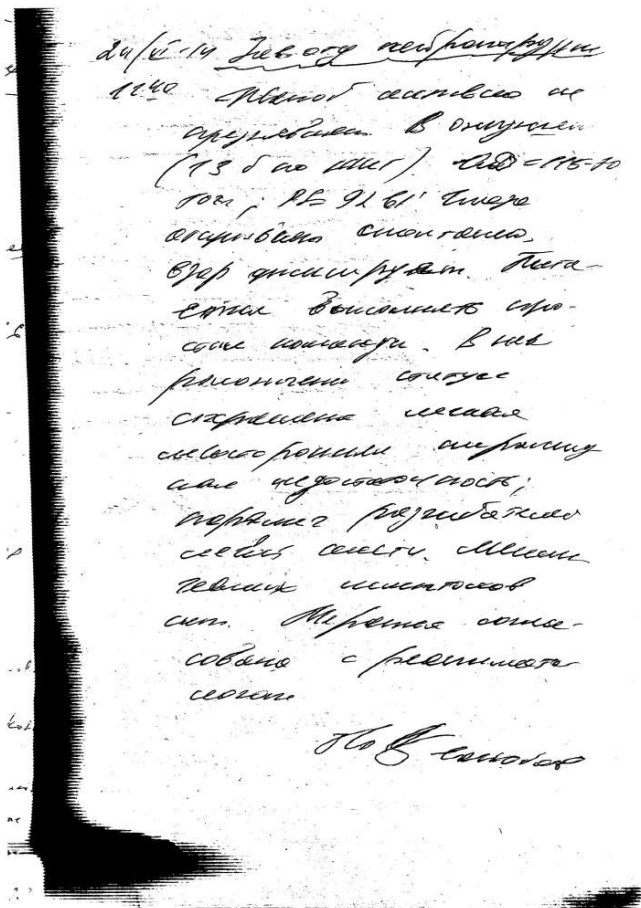 24/VI-14 Зав. отд нейрохирургии
11 40 Больной активно не
предъявляет. В оглушении
(13 б по ШКГ). АД = 115-70
Ps 92 61' Глаза
открывает спонтанно,
взор фиксирует. Пыта-
ется выполнять про-
стые команды. В нев
рологическом статусе
сохраняется легкая
левосторонняя пирамид
ная недостаточность;
паралич разгибателей
левой кисти. Менин
геальных симптомов
нет. Терапия согла-
сована с реанимато
логом